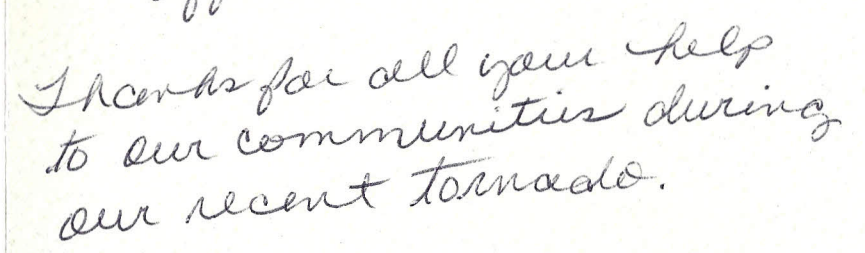 Thanks for all your help
to our communities during
our recent tornado.